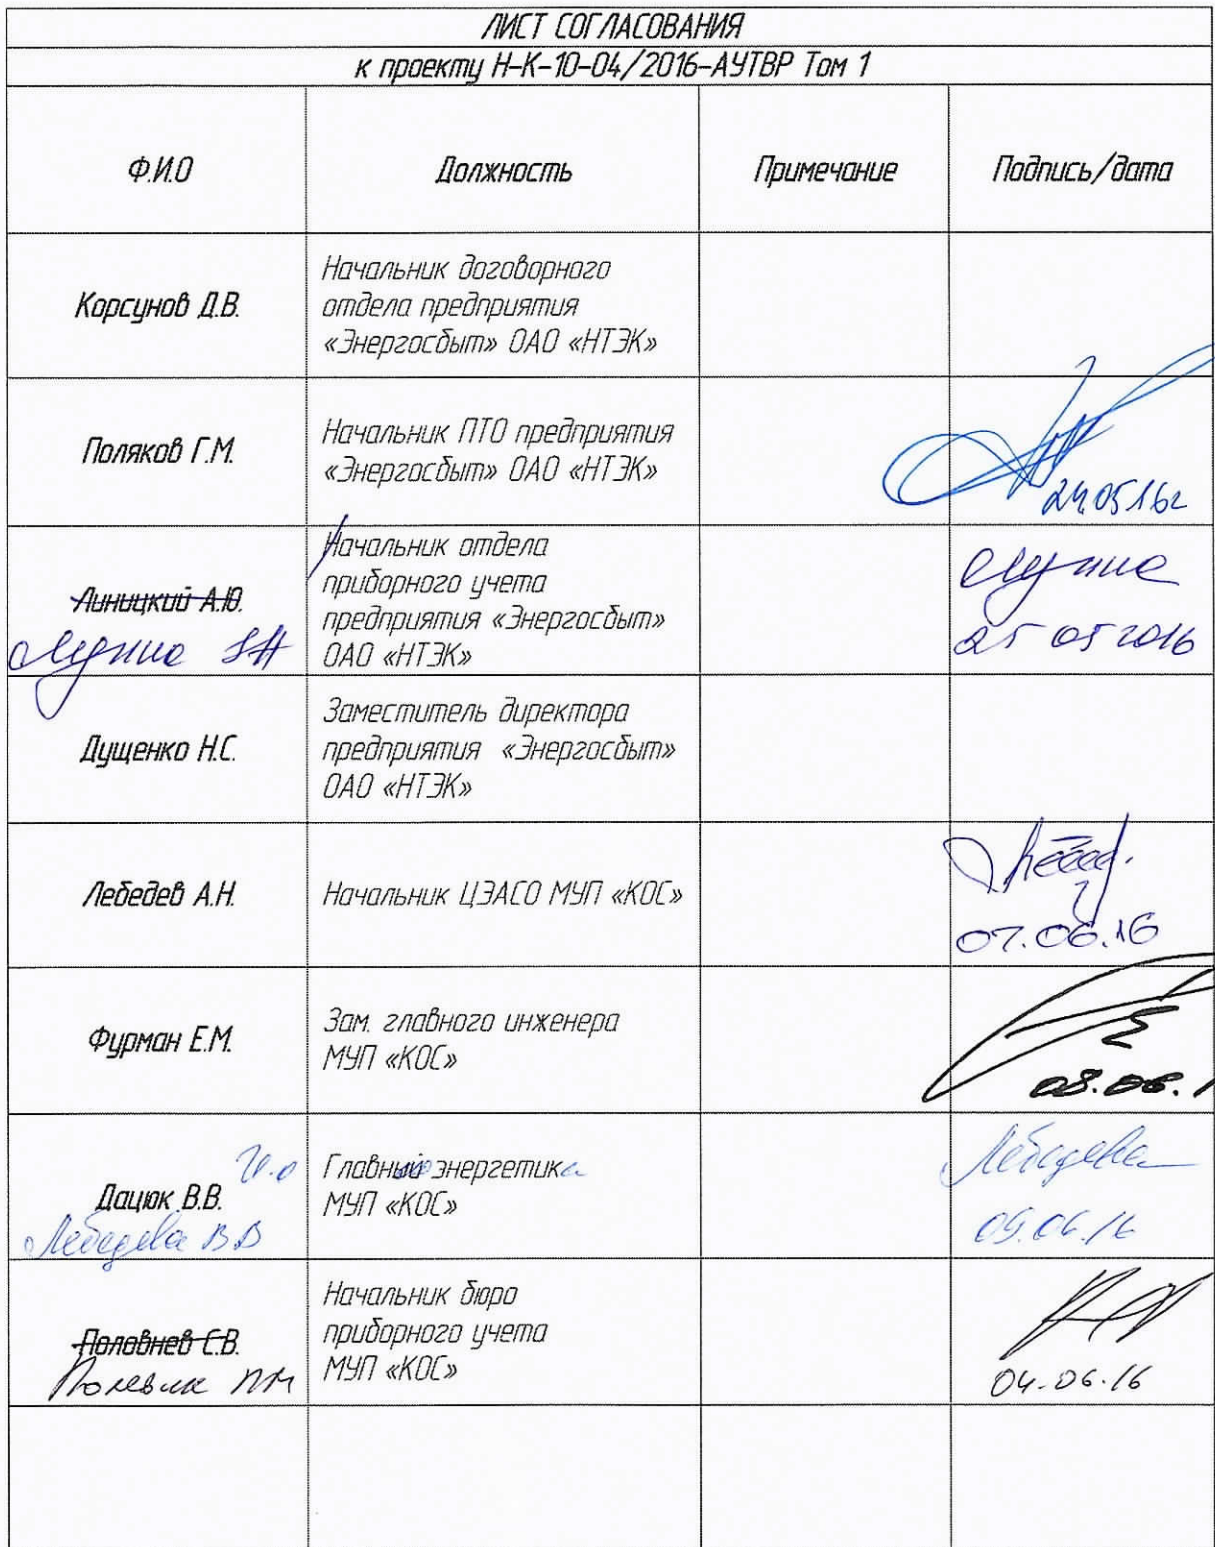 ЛИСТ СОГЛАСОВАНИЯ
к проекту Н-К-10-04/2016-АУТВР Том 1
Ф.И.О
Должность
Примечание
Подпись/дата
Корсунов Д.В.
Начальник договорного
отдела предприятия
«Энергосбыт» ОАО «НТЭК»
Поляков Г.М.
Начальник ПТО предприятия
«Энергосбыт» ОАО «НТЭК»
24.05.16г
Линицкий А.Ю.
Начальник отдела
приборного учета
предприятия «Энергосбыт»
ОАО «НТЭК»
25 05 2016
Дущенко Н.С.
Заместитель директора
предприятия «Энергосбыт»
ОАО «НТЭК»
Лебедев А.Н.
Начальник ЦЭАСО МУП «КОС»
07.06.16
Фурман Е.М.
Зам. главного инженера
МУП «КОС»
08.06.1
И.о
Дацюк В.В.
Лебедева В В
Главного энергетика
МУП «КОС»
Лебедева
09.06.16
Половнев С.В.
Начальник бюро
приборного учета
МУП «КОС»
04.06.16